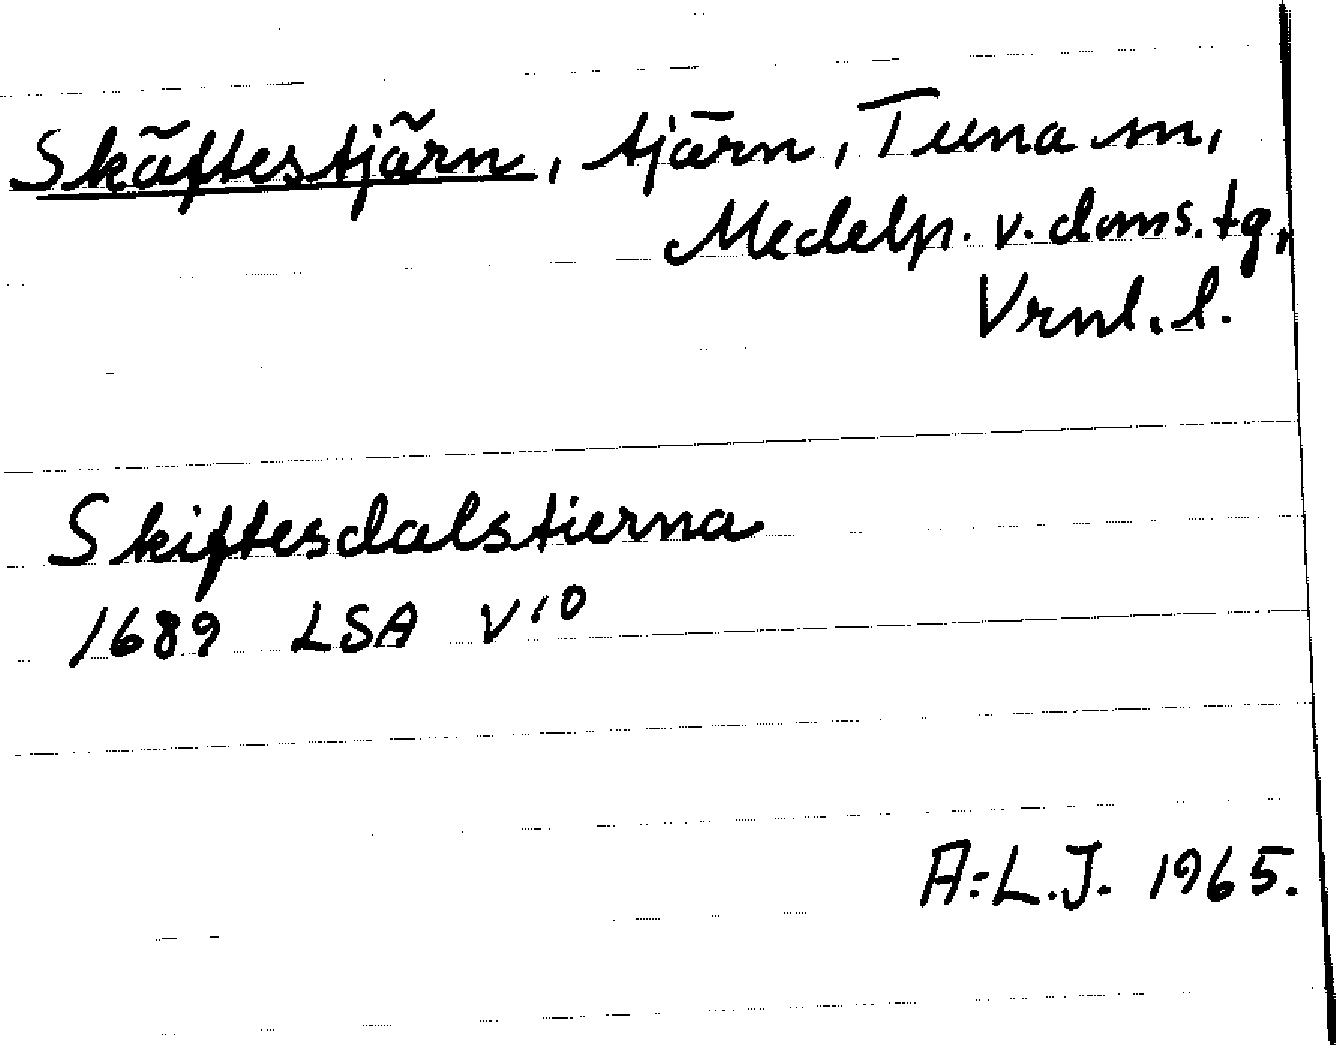 Skäftestjärn, tjärn, Tuna sn,
Medelp. v. doms. tg,
Vrnl. l.
Skiftesdalstierna
1689 LSA V 10
A:L.J. 1965.